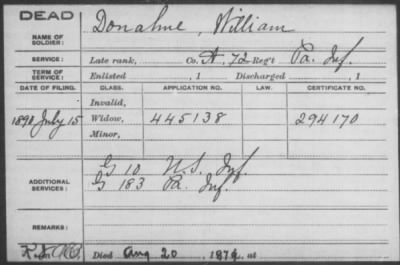 DEAD
NAME OF SOLDIER: Donahue, William
SERVICE: Late rank, Co. A, 72 Reg't Pa. Inf.
TERM OF SERVICE: Enlisted , 1 Discharged , 1
DATE OF FILING. CLASS. APPLICATION NO. LAW. CERTIFICATE NO.
Invalid,
1890 July 15 Widow, 445138 294170
Minor,
ADDITIONAL SERVICES: G 10 U.S. Inf.
G 183 Pa. Inf.
REMARKS:
Died Aug 20, 1879, at